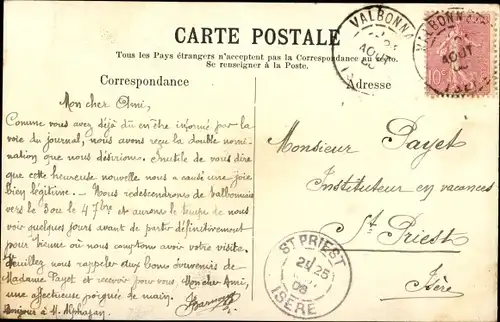 CARTE POSTALE
Tous les Pays étrangers n'acceptent pas la Correspondance au
Se renseigner à la Poste.
Correspondance
Adresse
VALBONNAIS
AOUT
ISÈRE
VALBONNAIS
AOUT
ISÈRE
10
Mon cher Ami,
Comme vous avez déjà dû en être informé par la
voie du journal, nous avons reçu la double nomi-
nation que nous désirions. Inutile de vous dire
que cette heureuse nouvelle nous a causé une joie
bien légitime. - Nous redescendrons de Valbonnais
vers le 3 ou le 4 7bre et aurons le temps de nous
voir quelques jours avant de partir définitivement
pour où nous comptons avoir votre visite.
Veuillez nous rappeler aux bons souvenirs de
Madame Payet et recevoir pour vous, Mon cher Ami,
une affectueuse poignée de main.
Bonjour à M.
Monsieur Payet
Instituteur en vacances
St Priest
Isère
ST PRIEST
21 25
06
ISÈRE